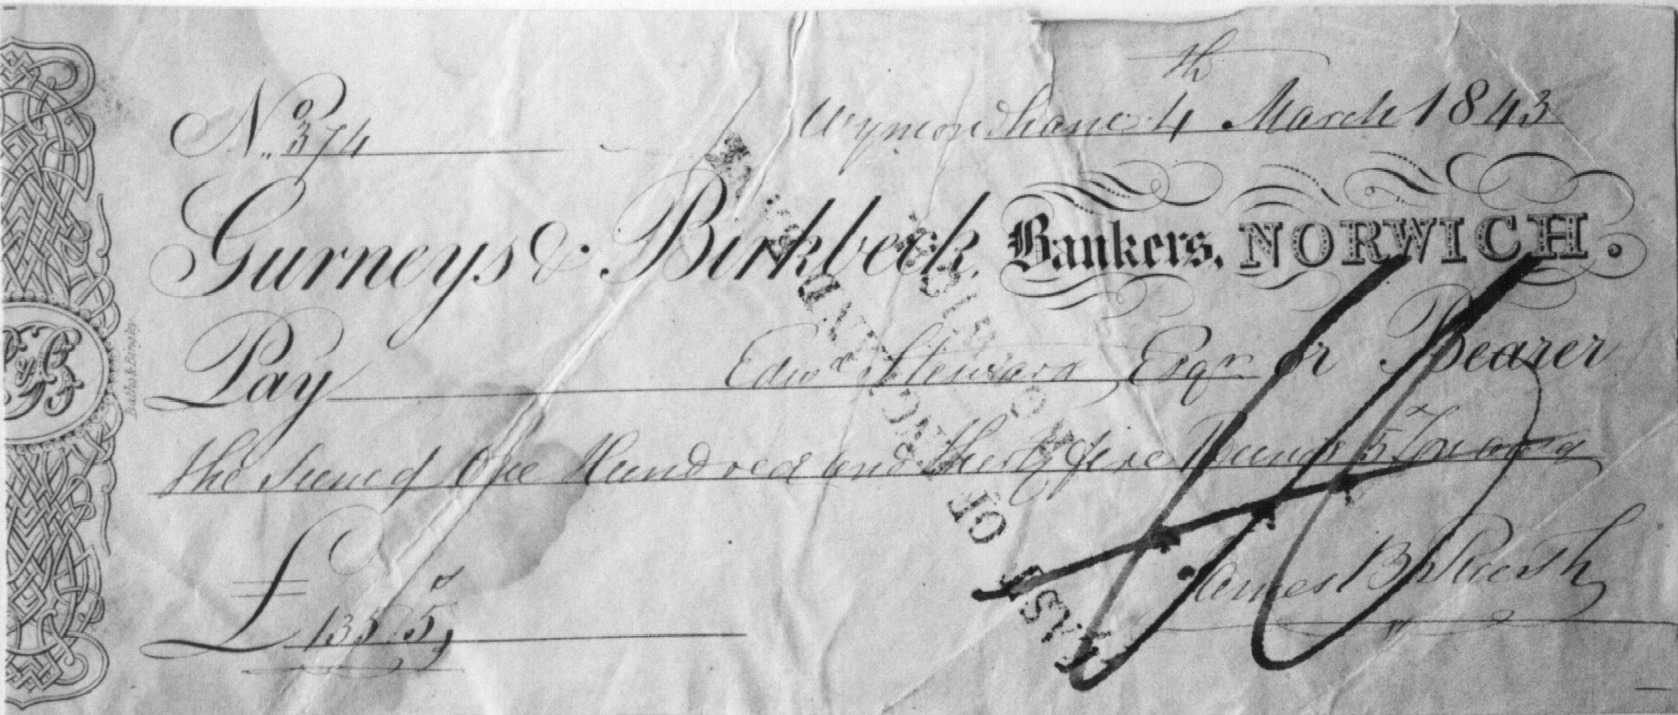 No. 374
Wymondham 4th March 1843
Gurneys & Birkbeck, Bankers, NORWICH.
Pay Edwd Steward Esqr or Bearer
the sum of One Hundred and thirty five Pounds 5
£135,,5,,
James B
BANK OF ENGLAND
NORWICH